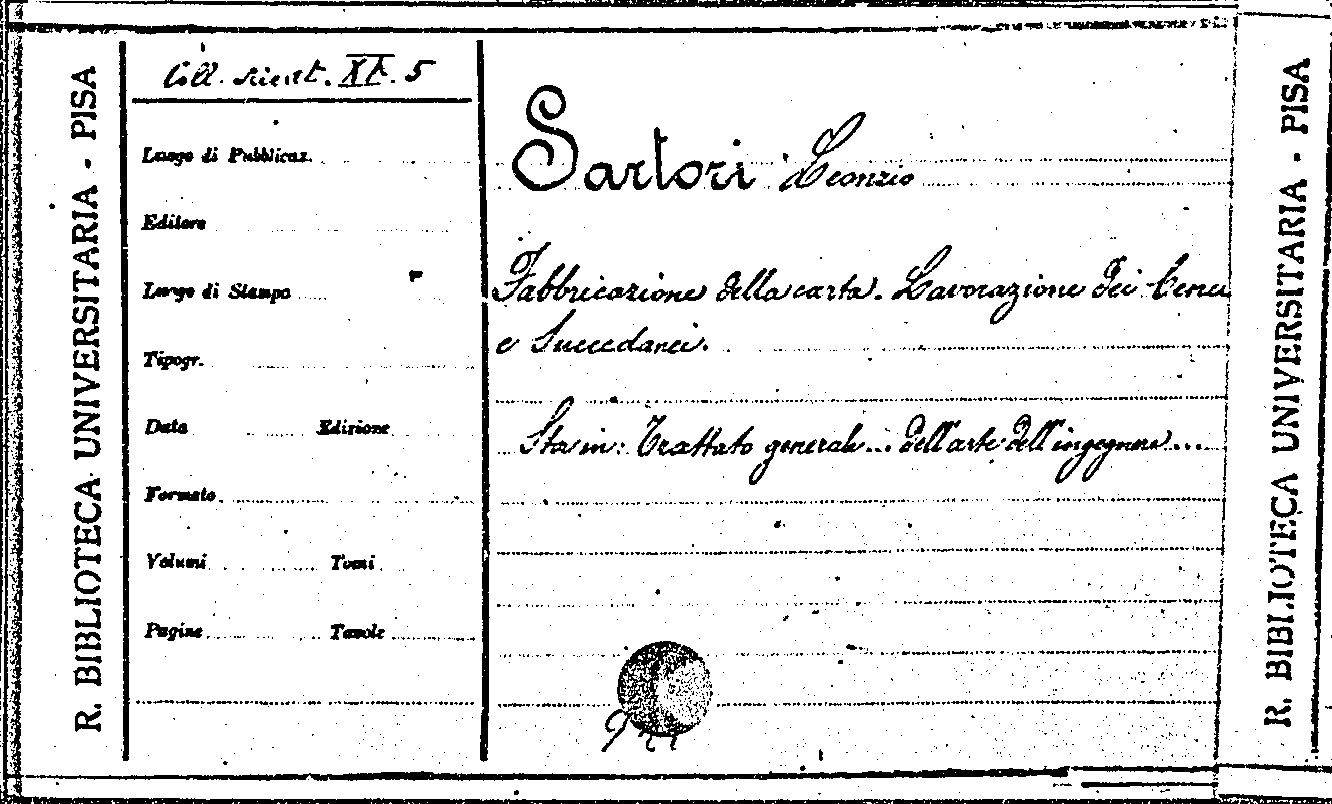 R. BIBLIOTECA UNIVERSITARIA - PISA
Coll. scient. XI. 5
Luogo di Pubblicaz.
Editore
Luogo di Stampa
Tipogr.
Data Edizione
Formato
Volumi Tomi
Pagine Tavole
Sartori Leonzio
Fabbricazione della carta. Lavorazione dei Cenci
e Succedanei.
Sta in: Trattato generale... dell'arte dell'ingegnere...
R. BIBLIOTECA UNIVERSITARIA - PISA